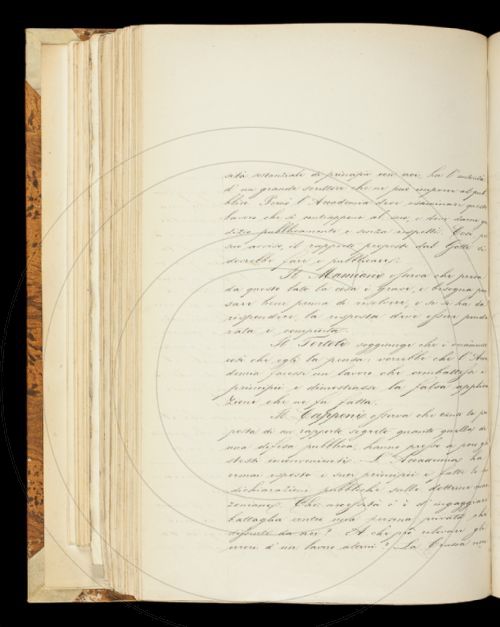 sità sostanziale di principii con noi, ha l'autorità
d'un grande scrittore che ne può imporre al pub
blico. Però l'Accademia deve esaminare questo
lavoro che si contrappone al suo, e dirne
pubblicamente e senza rispetti. Così
suo avviso, il rapporto proposto dal Gotti si
dovrebbe fare e pubblicare.
Il Mamiani osserva che presa
da questo lato la cosa è grave, e bisogna pen
sare bene prima di risolvere, e se si ha da
rispondere, la risposta deve essere ponde
rata e compiuta.
Il Tortoli soggiunge che è
così che egli la pensa: vorrebbe che l'Acca
demia facesse un lavoro che combattesse i
principii e dimostrasse la falsa applica
zione che ne fu fatta.
Il Capponi osserva che tanto la pro
posta di un rapporto segreto quanto quella di
una difesa pubblica, hanno presso a poco gli
stessi inconvenienti. L'Accademia ha
ormai esposto i suoi principii e fatte le
dichiarazioni pubbliche sulle dottrine man
zoniane. Che necessità c'è di ingaggiare
battaglia contro una persona privata che
da noi? A che più rilevare gli
errori d'un lavoro altrui? La Crusca non